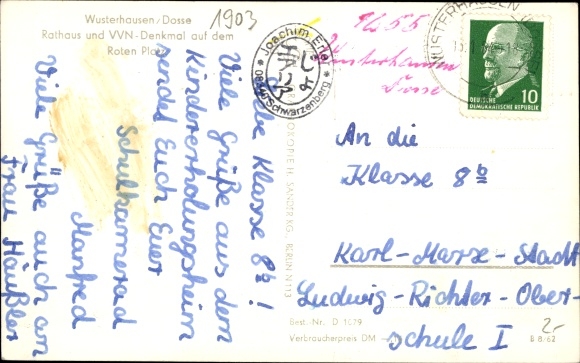 Wusterhausen/Dosse
Rathaus und VVN-Denkmal auf dem
Roten Platz
1903
Joachim Erler
08340 Schwarzenberg
1955
Wusterhausen
Dosse
WUSTERHAUSEN
10
DEUTSCHE
DEMOKRATISCHE REPUBLIK
Liebe Klasse 8b!
Viele Grüße aus dem
Kindererholungsheim
sendet Euch Euer
Schulkamerad
Manfred
Viele Grüße auch an
Frau Häußler
H. SANDER KG. BERLIN N 113
An die
Klasse 8b
Karl-Marx-Stadt
Ludwig-Richter-Ober-
schule I
Best.-Nr. D 1079
Verbraucherpreis DM
B 8/62
2.-